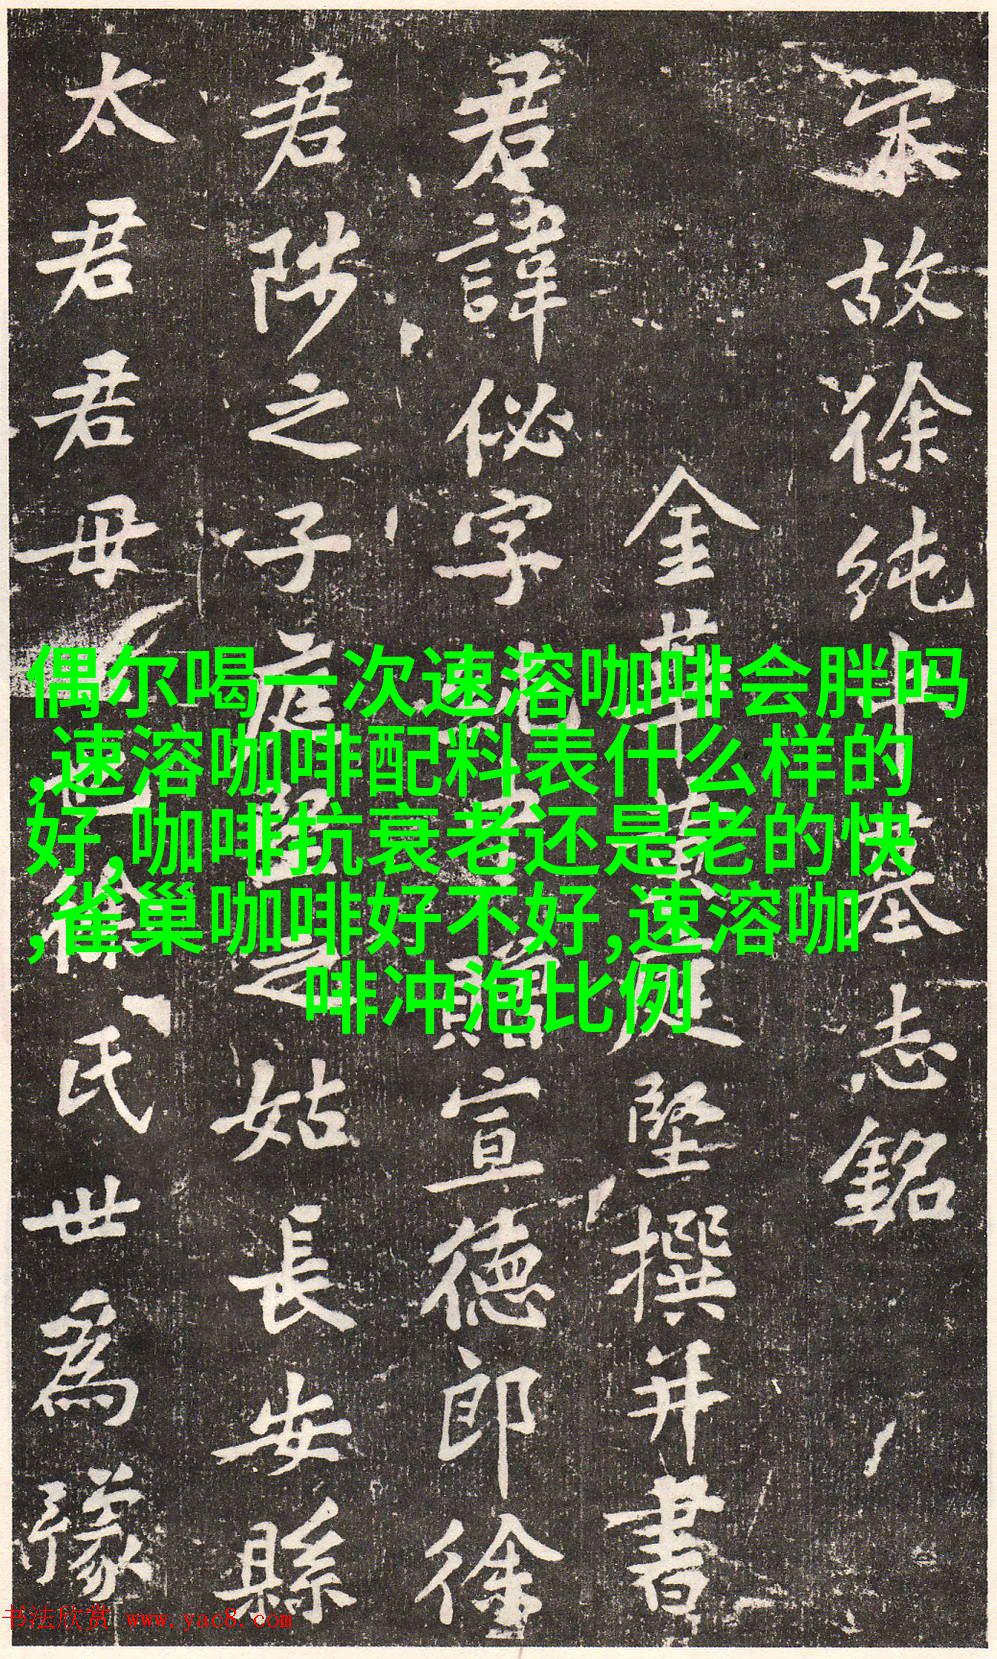 宋故徐純中墓志銘
金華黃庭堅撰并書
君諱佖字中贈宣德郎徐
君陟之子庭堅之姑長安縣
太君君毋徐氏世爲豫
偶尔喝一次速溶咖啡会胖吗
,速溶咖啡配料表什么样的
好,咖啡抗衰老还是老的快
,雀巢咖啡好不好,速溶咖
啡冲泡比例
书法欣赏 www.yac8.com